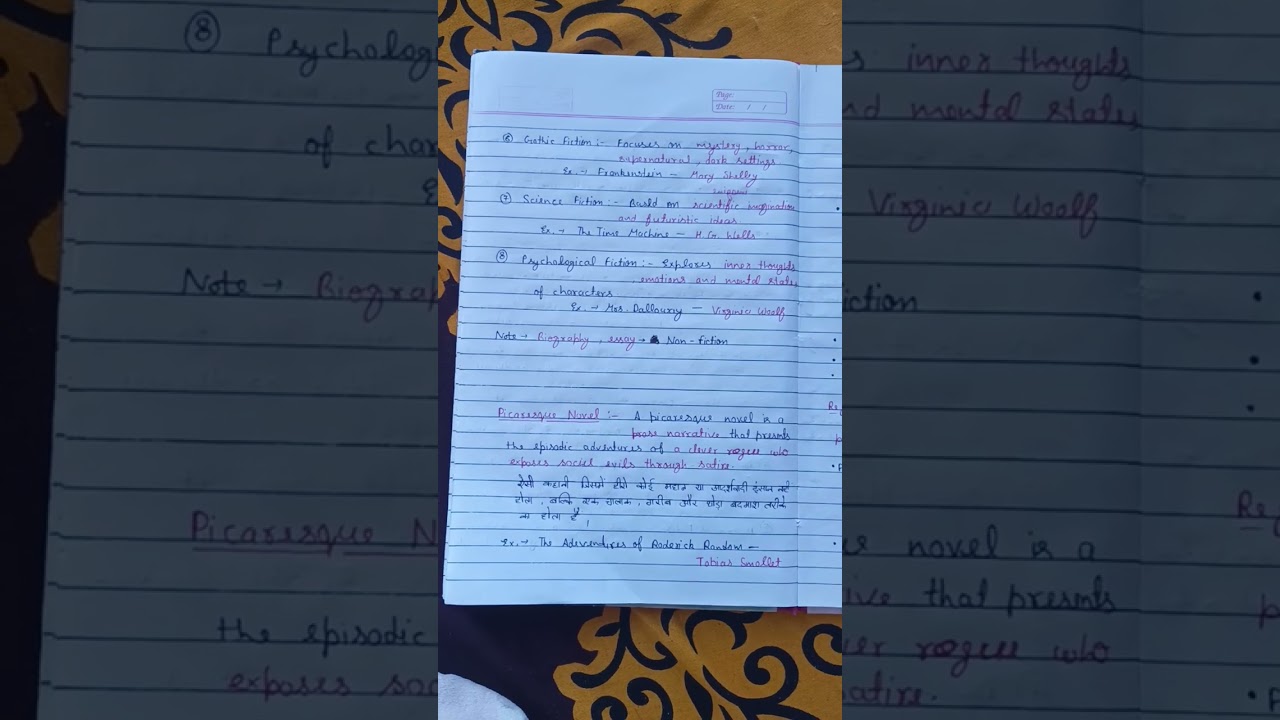 Page:
Date: / /
⑥ Gothic Fiction :- Focuses on mystery, horror,
supernatural, dark settings
Ex. → Frankenstein - Mary Shelley
⑦ Science Fiction :- Based on scientific imagination
and futuristic ideas
Ex. → The Time Machine - H.G. Wells
⑧ Psychological Fiction :- Explores inner thoughts
, emotions and mental states
of characters
Ex. → Mrs. Dalloway - Virginia Woolf
Note → Biography, essay → Non-fiction
Picaresque Novel :- A picaresque novel is a
prose narrative that presents
the episodic adventures of a clever rogue who
exposes social evils through satire.
ऐसी कहानी जिसमें हीरो कोई महान या आदर्शवादी इंसान नहीं
होता, बल्कि एक चालाक, गरीब और थोड़ा बदमाश
का होता है।
Ex. → The Adeventures of Roderick Random -
Tobias Smollet